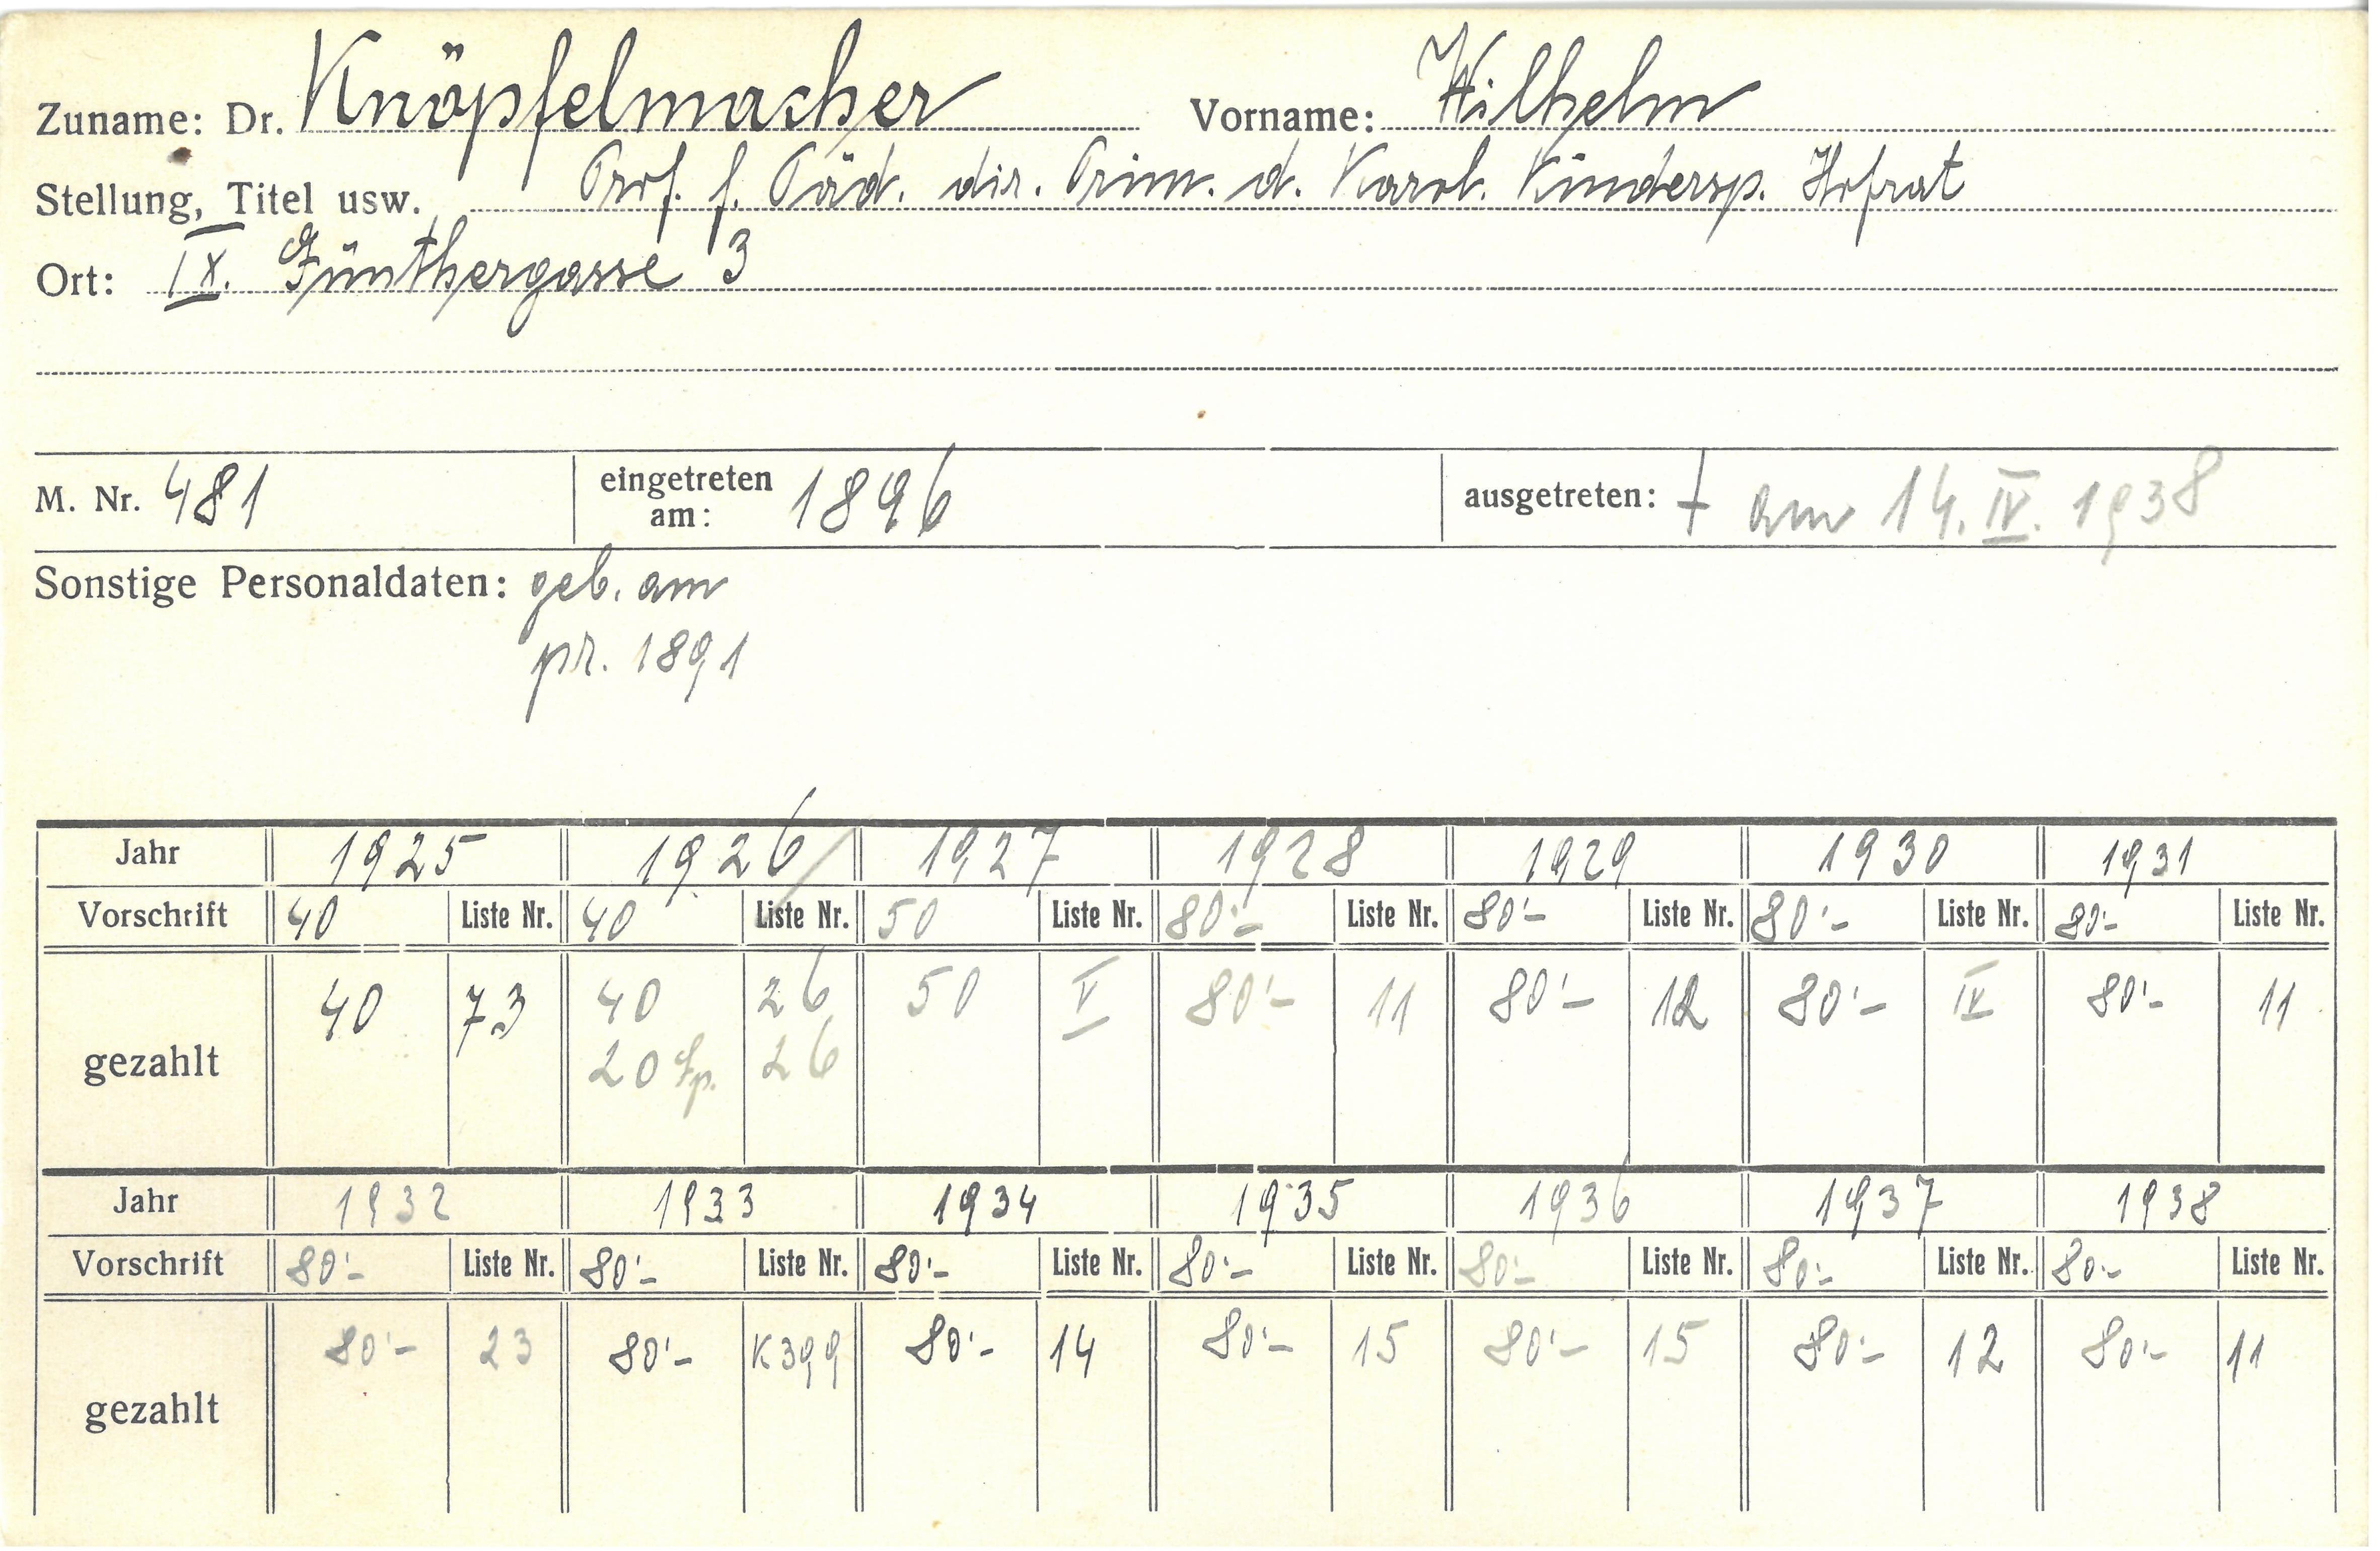 Zuname: Dr. Knöpfelmacher Vorname: Wilhelm
Stellung, Titel usw. Prof. f. Päd. dir. Prim. d. Karol. Kindersp. Hofrat
Ort: IX. Günthergasse 3
M. Nr. 481 eingetreten am: 1896 ausgetreten: † am 14. IV. 1938
Sonstige Personaldaten: geb. am
pr. 1891
Jahr 1925 1926 1927 1928 1929 1930 1931
Vorschrift 40 Liste Nr. 40 Liste Nr. 50 Liste Nr. 80'- Liste Nr. 80'- Liste Nr. 80'- Liste Nr. 80'- Liste Nr.
40 73 40 26 50 V 80'- 11 80'- 12 80'- IV 80'- 11
gezahlt 20 26
Jahr 1932 1933 1934 1935 1936 1937 1938
Vorschrift 80'- Liste Nr. 80'- Liste Nr. 80'- Liste Nr. 80'- Liste Nr. 80'- Liste Nr. 80'- Liste Nr. 80'- Liste Nr.
80'- 23 80'- K399 80'- 14 80'- 15 80'- 15 80'- 12 80'- 11
gezahlt